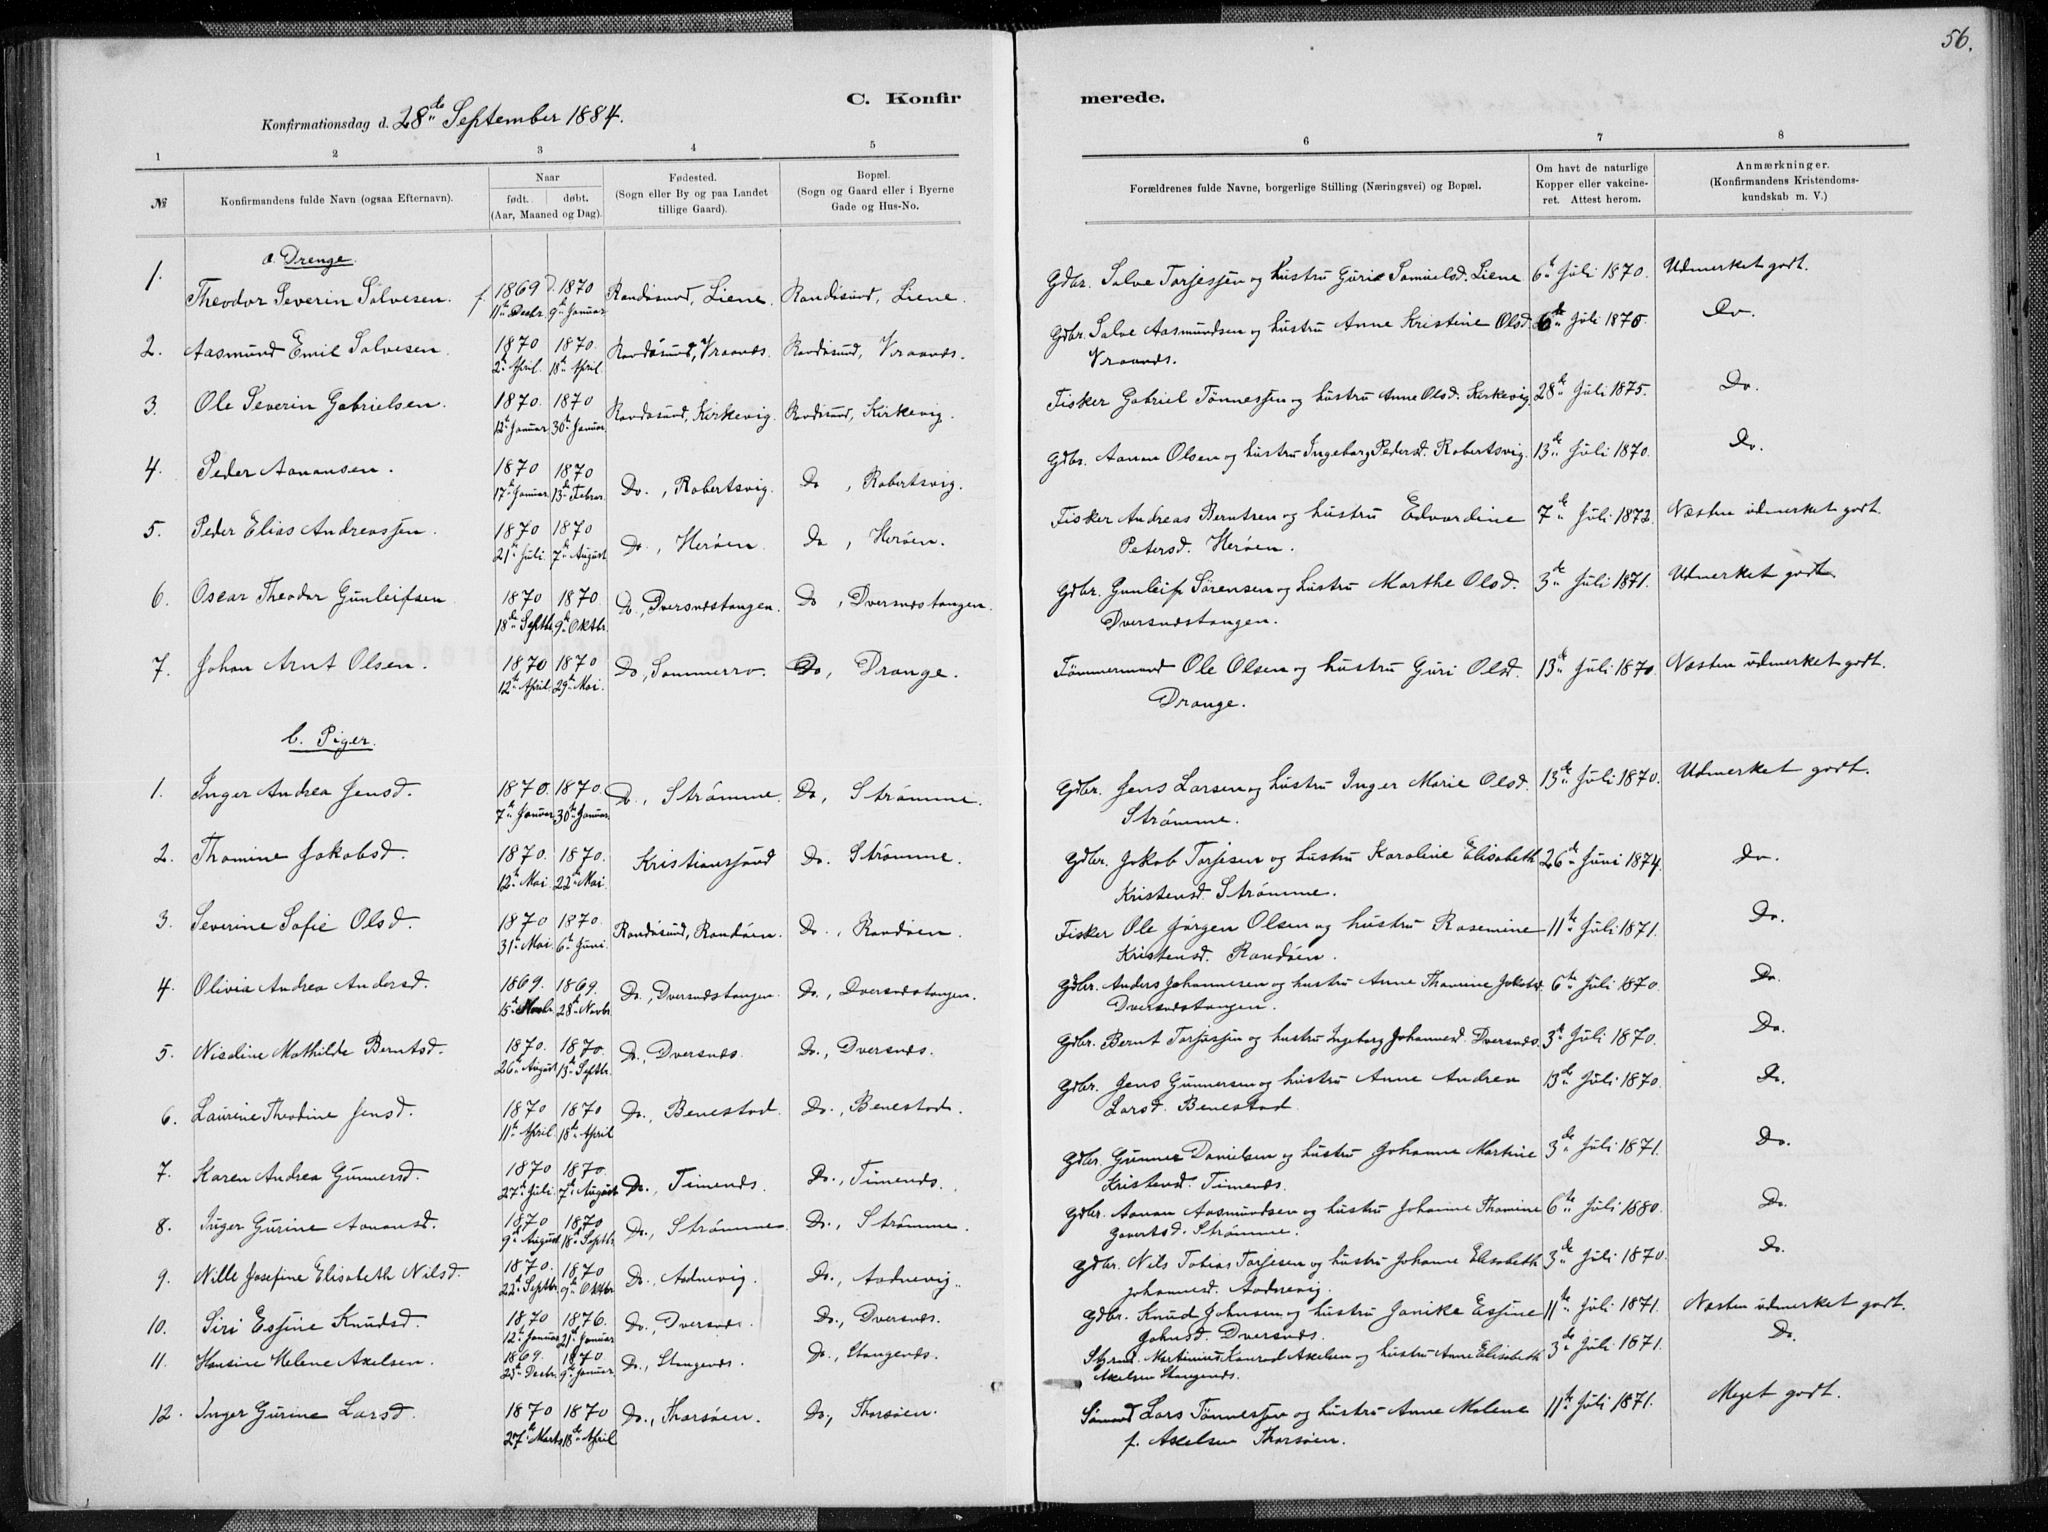 56.
C. Konfirmerede.
Konfirmationsdag d. 28de September 1884.
1 2 3 4 5 6 7 8
№ Konfirmandens fulde Navn (ogsaa Efternavn). Naar født. døbt. (Aar, Maaned og Dag). Fødested. (Sogn eller By og paa Landet tillige Gaard). Bopæl. (Sogn og Gaard eller i Byerne Gade og Hus-No. Forældrenes fulde Navne, borgerlige Stilling (Næringsvei) og Bopæl. Om havt de naturlige Kopper eller vakcineret. Attest herom. Anmærkninger. (Konfirmandens Kristendomskundskab m. V.)
a. Drenge.
1. Theodor Severin Salvesen. f. 1869 11te Decbr. 1870 9de Januar Randøsund, Liene. Randøsund, Liene. Gdbr. Salve Torjessen og hustru Guri Samuelsd. Liene 6te Juli 1870. Udmerket godt.
2. Aasmund Emil Salvesen. 1870 2de April. 1870. 18de April Randøsund, Vraanes. Randøsund, Vraanes. Gdbr. Salve Aasmundsen og hustru Anne Kristine Olsd. Vraanes. 6te Juli 1870. Do.
3. Ole Severin Gabrielsen. 1870. 12te Januar 1870 30te Januar. Randøsund, Kirkevig. Randøsund, Kirkevig. Fisker Gabriel Tønnessen og hustru Anne Olsd. Kirkevig. 28de Juli 1875. Do.
4. Peder Aanansen. 1870 17de Januar. 1870 13de Februar Do., Robertsvig. Do, Robertsvig. Gdbr. Aanan Olsen og hustru Ingeborg Pedersd. Robertsvig. 13de Juli 1870. Do.
5. Peder Elias Andreassen. 1870 21de Juli. 1870 7de August Do, Herøen. Do, Herøen. Fisker Andreas Berntsen og hustru Edvardine Petersd. Herøen. 7de Juli 1872. Næsten udmerket godt.
6. Oscar Theodor Gunleifsen 1870 18de Septbr. 1870. 9de Oktbr. Do., Dversnæstangen. Do, Dversnæstangen. Gdbr. Gunleif Sørensen og hustru Marthe Olsd. Dversnæstangen. 3de Juli 1871. Udmerket godt
7. Johan Arnt Olsen. 1870 12te April. 1870 29de Mai. Do, Sommerro. Do, Drange. Tømmermand Ole Olsen og hustru Guri Olsd. Drange. 13de Juli 1870. Næsten udmerket godt.
b. Piger.
1. Inger Andrea Jensd. 1870. 7de Januar 1870. 30te Januar. Do., Strømme. Do, Strømme. Gdbr. Jens Larsen og hustru Inger Marie Olsd. Strømme. 13de Juli 1870. Udmerket godt.
2. Thomine Jakobsd. 1870. 12te Mai. 1870. 22de Mai. Kristianssand Do. Strømme. Gdbr. Jakob Torjesen og hustru Karoline Elisabeth Kristensd. Strømme. 26de Juni 1874. Do.
3. Severine Sofie Olsd. 1870 31te Mai 1870. 6te Juni. Randøsund, Randøen. Do., Randøen. Fisker Ole Jørgen Olsen og hustru Rosemine Kristensd. Randøen. 11te Juli 1871. Do.
4. Olivia Andrea Andersd. 1869. 15te Novbr. 1869. 28de Novbr. Do., Dversnæstangen. Do., Dversnæstangen. Gdbr. Anders Johannesen og hustru Anne Thomine Jakobsd. Dversnæstangen. 6te Juli 1870. Do.
5. Nicoline Mathilde Berntsd. 1870. 26de August 1870. 13de Septbr. Do. Dversnæs. Do., Dversnæs. Gdbr. Bernt Torjussen og hustru Ingeborg Johannesd. Dversnæs. 3de Juli 1870. Do.
6. Laurine Theodine Jensd. 1870 11te April. 1870 18de April Do., Benestad. Do., Benestad. Gdbr. Jens Gunnersen og hustru Anne Andrea Larsd. Benestad. 13de Juli 1870. Do.
7. Karen Andrea Gunnersd. 1870 27de Juli. 1870. 7de August Do., Timenæs. Do., Timenæs. Gdbr. Gunner Danielsen og hustru Johanne Martine Kristensd. Timenæs. 3de Juli 1871. Do.
8. Inger Gurine Aanansd. 1870 9de August 1870 18de Septbr. Do., Strømme. Do., Strømme. Gdbr. Aanan Aasmundsen og hustru Johanne Thomine Govertsd. Strømme. 6te Juli 1880. Do.
9. Nille Josefine Elisabeth Nilsd. 1870. 22de Septbr. 1870 9de Oktbr Do., Aadnevig. Do., Aadnevig. Gdbr. Nils Tobias Torjesen og hustru Johanne Elisabeth Johannesd. Aadnevig. 3de Juli 1870. Do.
10. Siri Essine Knudsd. 1870 12te Januar 1870. 21de Januar. Do., Dversnæs. Do., Dversnæs. Gdbr. Knud Johnsen og hustru Janike Essine Johnsd. Dversnæs. 11te Juli 1871. Næsten udmerket godt.
11. Hansine Helene Axelsen. 1869. 25de Decbr. 1870. 9de Januar Do., Stangenæs. Do., Stangenæs. Styrmd. Martinius Konrad Axelsen og hustru Anne Elisabeth Axelsen Stangenæs. 3de Juli 1871. Do.
12. Inger Gurine Larsd. 1870 27de Marts 1870 18de April Do., Thorsøen. Do., Thorsøen. Sømand Lars Tønnessen og hustru Anne Malene f. Axelsen Thorsøen. 11te Juli 1871. Meget godt.